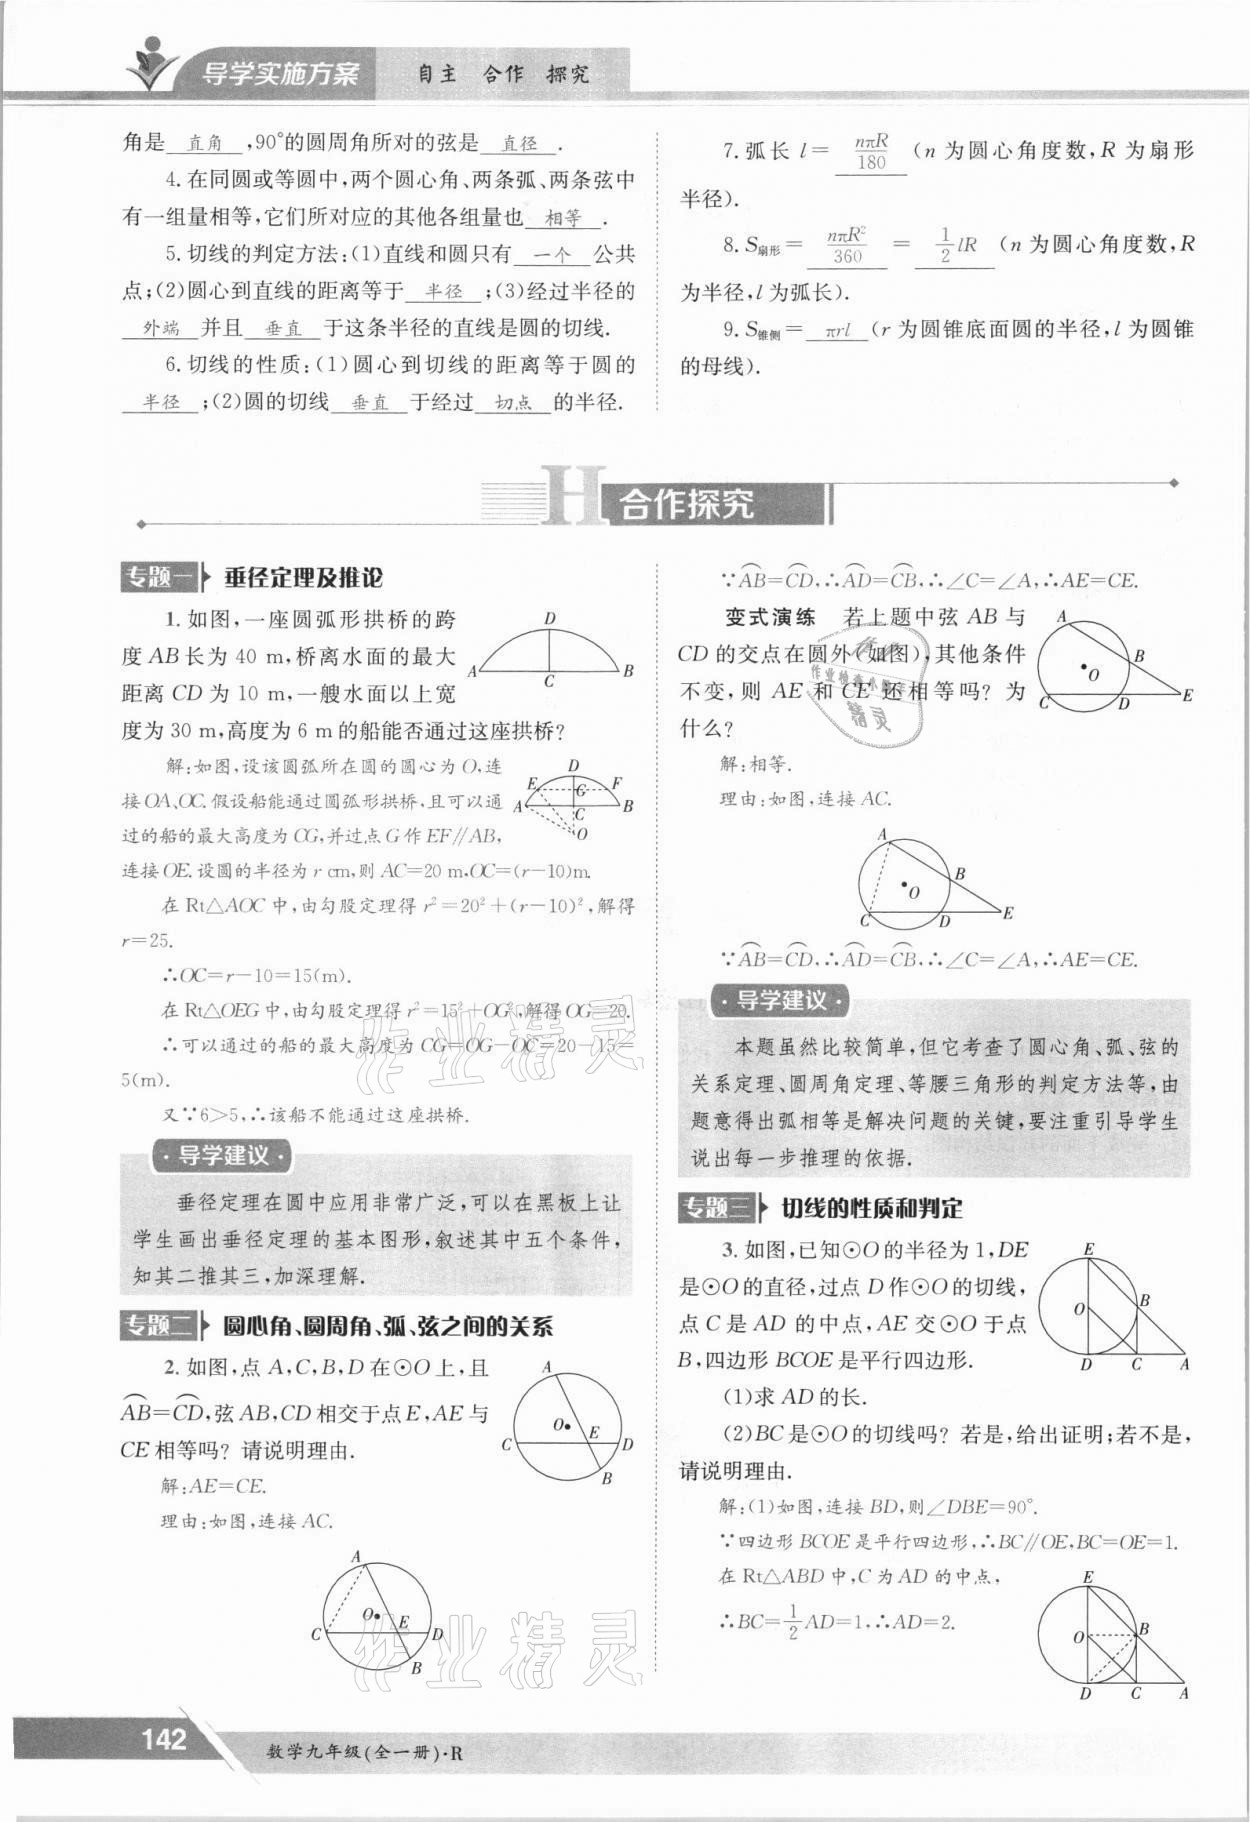 导学实施方案 自主 合作 探究
角是 直角 ,90°的圆周角所对的弦是 直径 .
4.在同圆或等圆中,两个圆心角、两条弧、两条弦中
有一组量相等,它们所对应的其他各组量也 相等 .
5.切线的判定方法:(1)直线和圆只有 一个 公共
点;(2)圆心到直线的距离等于 半径 ;(3)经过半径的
外端 并且 垂直 于这条半径的直线是圆的切线.
6.切线的性质:(1)圆心到切线的距离等于圆的
半径 ;(2)圆的切线 垂直 于经过 切点 的半径.
7.弧长 l= nπR/180 (n 为圆心角度数,R 为扇形
半径).
8.S扇形= nπR²/360 = 1/2 lR (n 为圆心角度数,R
为半径,l 为弧长).
9.S锥侧= πrl (r 为圆锥底面圆的半径,l 为圆锥
的母线).
H 合作探究
专题一 垂径定理及推论
1.如图,一座圆弧形拱桥的跨
度 AB 长为 40 m,桥离水面的最大
距离 CD 为 10 m,一艘水面以上宽
度为 30 m,高度为 6 m 的船能否通过这座拱桥?
D
A C B
解:如图,设该圆弧所在圆的圆心为 O,连
接 OA、OC.假设船能通过圆弧形拱桥,且可以通
过的船的最大高度为 CG,并过点 G 作 EF∥AB,
连接 OE.设圆的半径为 r cm,则 AC=20 m,OC=(r-10)m.
D
E G F
A C B
O
在 Rt△AOC 中,由勾股定理得 r²=20²+(r-10)²,解得
r=25.
∴OC=r-10=15(m).
在 Rt△OEG 中,由勾股定理得 r²=15²+OG²,解得 OG=20.
∴可以通过的船的最大高度为 CG=OG-OC=20-15=
5(m).
又∵6>5,∴该船不能通过这座拱桥.
·导学建议·
垂径定理在圆中应用非常广泛,可以在黑板上让
学生画出垂径定理的基本图形,叙述其中五个条件,
知其二推其三,加深理解.
专题二 圆心角、圆周角、弧、弦之间的关系
2.如图,点 A,C,B,D 在⊙O 上,且
⌒AB=⌒CD,弦 AB,CD 相交于点 E,AE 与
CE 相等吗? 请说明理由.
A
O E
C D
B
解:AE=CE.
理由:如图,连接 AC.
A
O E
C D
B
∵⌒AB=⌒CD,∴⌒AD=⌒CB,∴∠C=∠A,∴AE=CE.
变式演练 若上题中弦 AB 与
CD 的交点在圆外(如图),其他条件
不变,则 AE 和 CE 还相等吗? 为
什么?
A
B
O
C D E
解:相等.
理由:如图,连接 AC.
A
B
O
C D E
∵⌒AB=⌒CD,∴⌒AD=⌒CB,∴∠C=∠A,∴AE=CE.
·导学建议·
本题虽然比较简单,但它考查了圆心角、弧、弦的
关系定理、圆周角定理、等腰三角形的判定方法等,由
题意得出弧相等是解决问题的关键,要注重引导学生
说出每一步推理的依据.
专题三 切线的性质和判定
3.如图,已知⊙O 的半径为 1,DE
是⊙O 的直径,过点 D 作⊙O 的切线,
点 C 是 AD 的中点,AE 交⊙O 于点
B,四边形 BCOE 是平行四边形.
E
O B
D C A
(1)求 AD 的长.
(2)BC 是⊙O 的切线吗? 若是,给出证明;若不是,
请说明理由.
解:(1)如图,连接 BD,则∠DBE=90°.
∵四边形 BCOE 是平行四边形,∴BC∥OE,BC=OE=1.
在 Rt△ABD 中,C 为 AD 的中点,
∴BC=1/2 AD=1,∴AD=2.
E
O B
D C A
作业精灵
作业精灵
142
数学九年级(全一册)·R